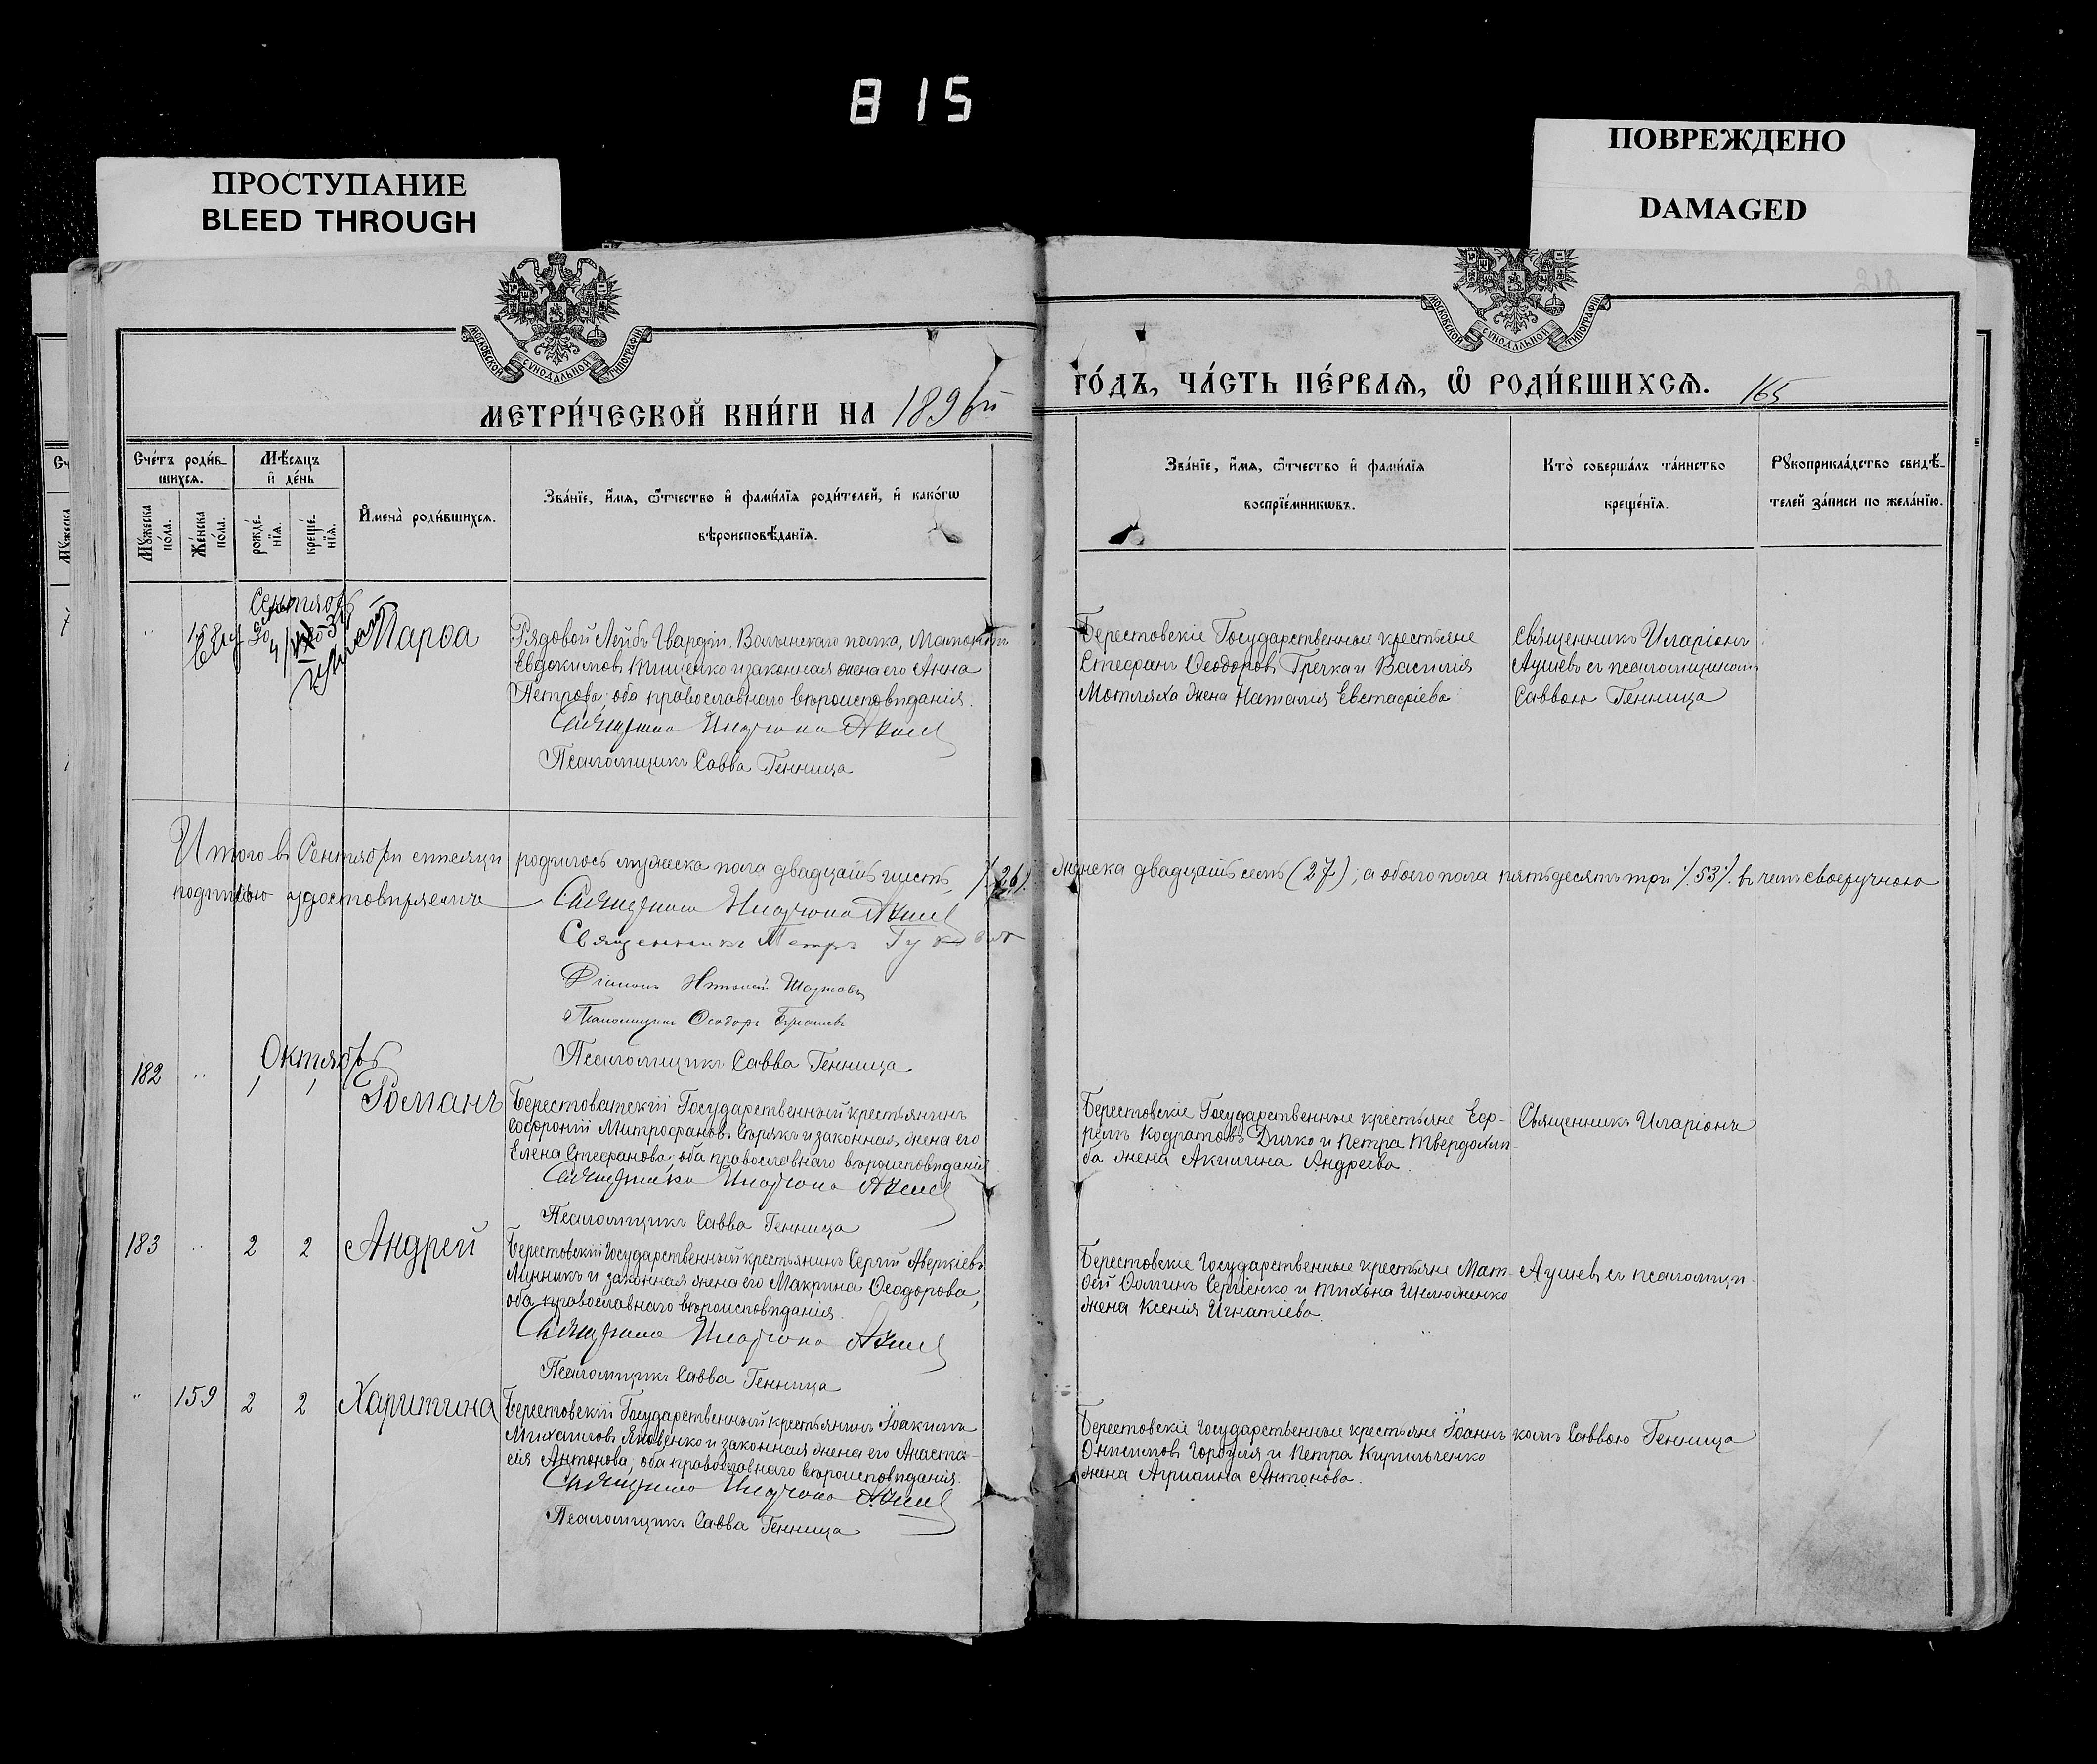 815
ПРОСТУПАНИЕ
BLEED THROUGH
ПОВРЕЖДЕНО
DAMAGED
МОСКОВСКОЙ СУНОДАЛЬНОЙ ТИПОГРАФІИ
МОСКОВСКОЙ СУНОДАЛЬНОЙ ТИПОГРАФІИ
МЕТРИ́ЧЕСКОЙ КНИ́ГИ НА 1896й
ГО́ДЪ, ЧА́СТЬ ПЕ́РВАѦ, Ѽ РОДИ́ВШИХСѦ. 165
Сче́тъ роди́в-
шихсѧ.
Мꙋ́жеска по́ла.
Же́нска по́ла.
Мѣ́сѧцъ
и҆ де́нь
рожде́-
нїѧ.
креще́-
нїѧ.
И҆мена̀ роди́вшихсѧ.
Зва́нїе, и҆́мѧ, ѻ҆́тчество и҆ фами́лїѧ роди́телей, и҆ како́гѡ
вѣроисповѣ́данїѧ.
Зва́нїе, и҆́мѧ, ѻ҆́тчество и҆ фами́лїѧ
воспрїе́мникѡвъ.
Кто̀ соверша́лъ та́инство
креще́нїѧ.
Рꙋкоприкла́дство свидѣ́-
телей за́писи по жела́нїю.
Сентябрь
158 30
Марѳа
Рядовой Лейбъ Гвардіи Волынскаго полка,
Евдокимовъ Тищенко и законная жена его Анна
Петрова, оба православнаго вѣроисповѣданія.
Священникъ Иларіонъ Аушевъ
Псаломщикъ Савва Генница
Берестовскіе Государственные крестьяне
Стефанъ Ѳеодоровъ Гречка и Василія
Мотляха жена Наталія Евстафіева
Священникъ Иларіонъ
Аушевъ съ псаломщикомъ
Саввою Генница
Итого въ Сентябрѣ мѣсяцѣ родилось мужеска пола двадцать шесть /.26/. женска двадцать семь (27), а обоего пола пятьдесятъ три /.53/. въ чемъ своеручною
подписью удостовѣряемъ
Священникъ Иларіонъ Аушевъ
Священникъ Петръ
Діаконъ Николай
Псаломщикъ Ѳеодоръ
Псаломщикъ Савва Генница
Октябрь
182 " 1 1 Романъ
Берестоватскій Государственный крестьянинъ
Софроній Митрофановъ Сѣрякъ и законная жена его
Елена Стефанова, оба православнаго вѣроисповѣданія
Священникъ Иларіонъ Аушевъ
Псаломщикъ Савва Генница
Берестовскіе Государственные крестьяне Еф-
ремъ Кодратовъ Дичко и Петра Твердохлѣ-
ба жена Акилина Андреева.
Священникъ Иларіонъ
183 " 2 2 Андрей
Берестовскій Государственный крестьянинъ Сергій Аверкіевъ
Линникъ и законная жена его Макрина Ѳеодорова,
оба православнаго вѣроисповѣданія.
Священникъ Иларіонъ Аушевъ
Псаломщикъ Савва Генница
Берестовскіе Государственные крестьяне Мат-
ѳей Ѳоминъ Сергіенко и Тихона
жена Ксенія Игнатіева.
Аушевъ съ псаломщи-
" 159 2 2 Харитина
Берестовскій Государственный крестьянинъ Іоакимъ
Михаиловъ Яковенко и законная жена его Анаста-
сія Антонова, оба православнаго вѣроисповѣданія.
Священникъ Иларіонъ Аушевъ
Псаломщикъ Савва Генница
Берестовскіе Государственные крестьяне Іоаннъ
Онисимовъ и Петра Кирильченко
жена Агрипина Антонова.
комъ Саввою Генница